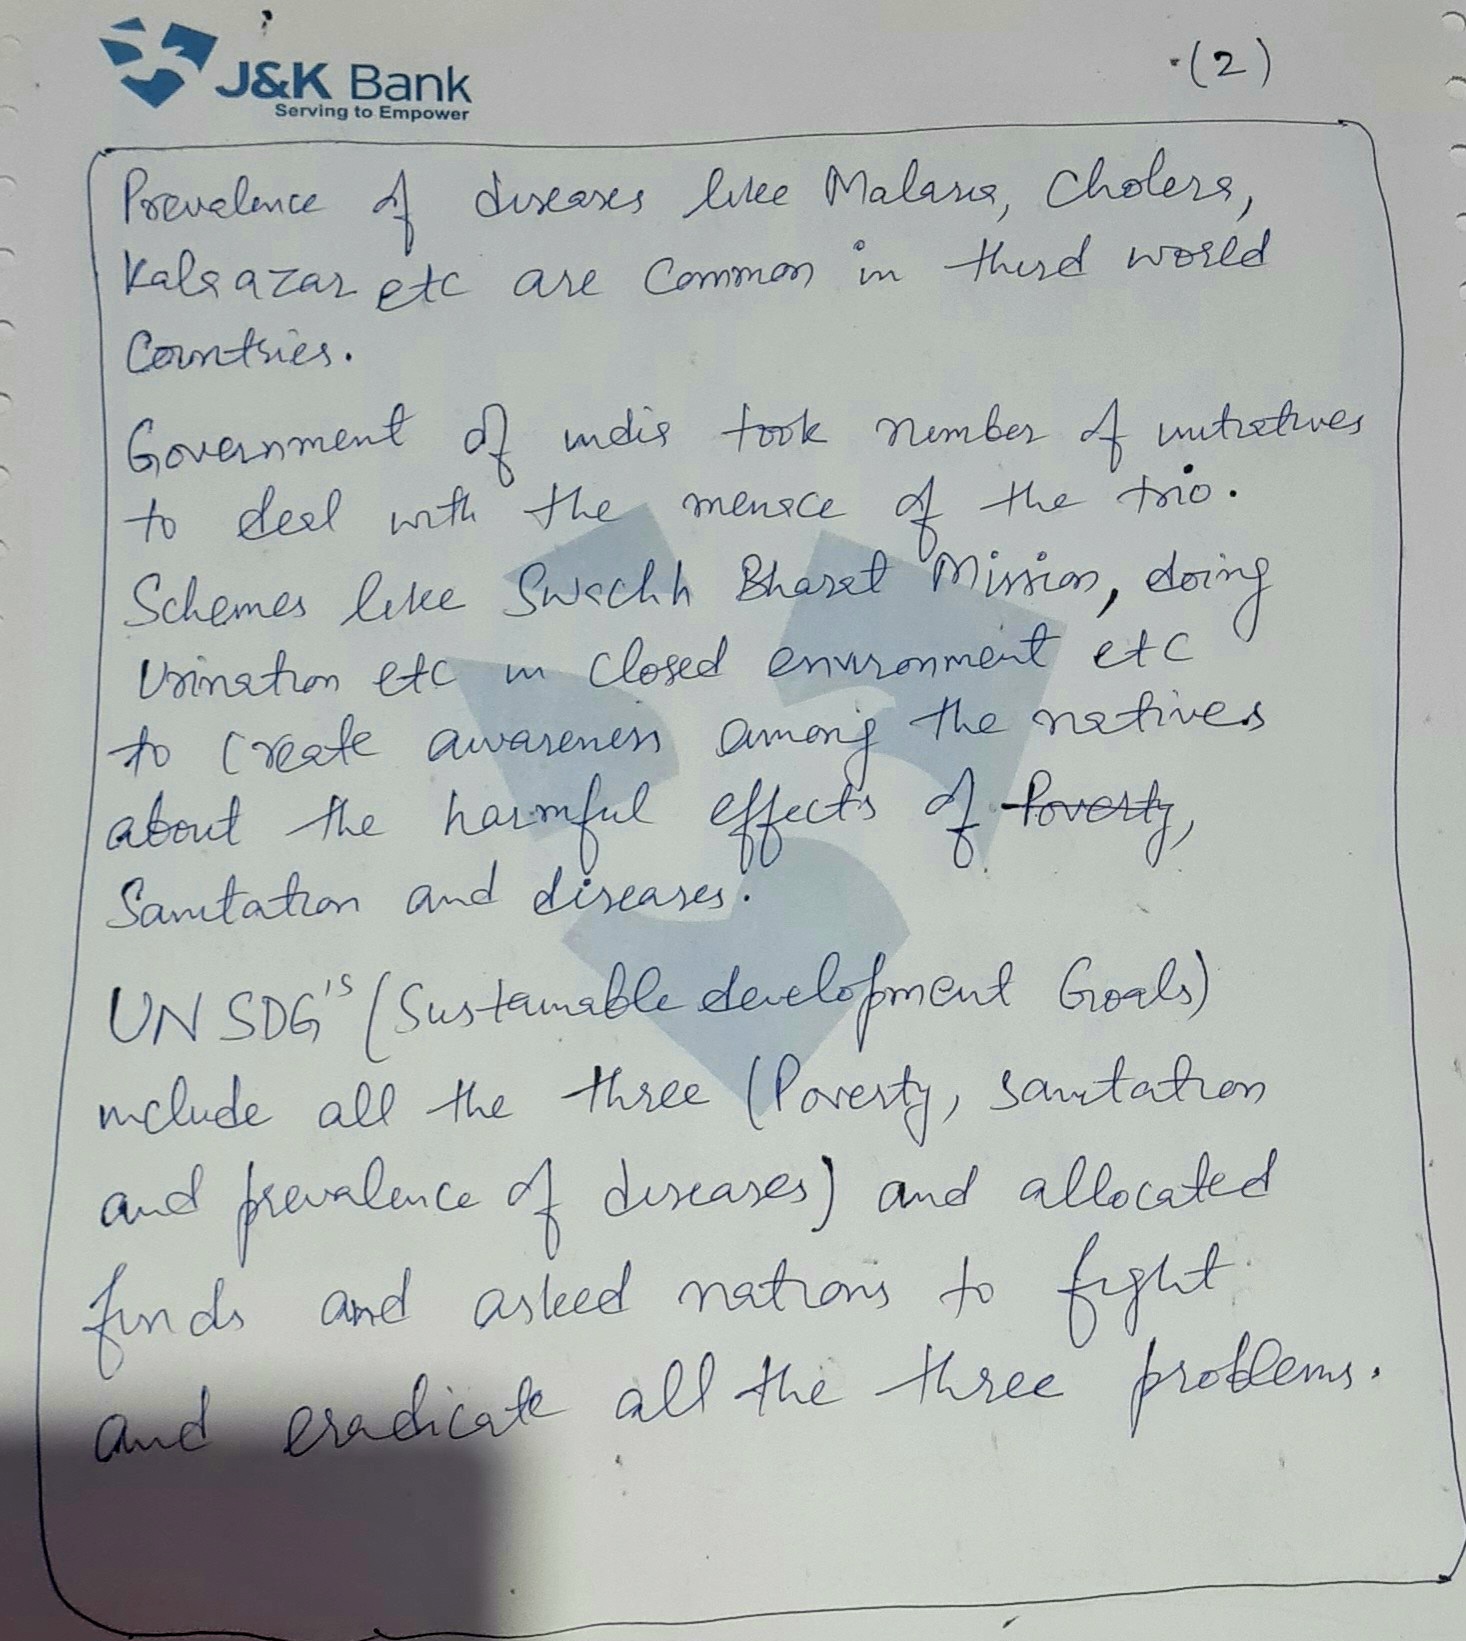 J&K Bank
Serving to Empower
(2)
Prevalence of diseases like Malaria, Cholera,
Kala azar etc are Common in third world
Countries.
Government of india took number of initiatives
to deal with the menace of the trio.
Schemes like Swachh Bharat Mission, doing
Urination etc in Closed environment etc
to Create awareness among the natives
about the harmful effects of Poverty,
Sanitation and diseases.
UN SDG's (Sustainable development Goals)
include all the three (Poverty, sanitation
and prevalence of diseases) and allocated
funds and asked nations to fight
and eradicate all the three problems.